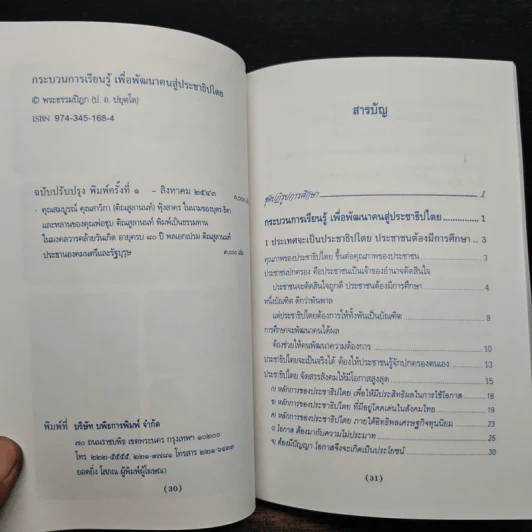 กระบวนการเรียนรู้ เพื่อพัฒนาคนสู่ประชาธิปไตย
© พระธรรมปิฎก (ป. อ. ปยุตฺโต)
ISBN 974-345-168-4
ฉบับปรับปรุง พิมพ์ครั้งที่ ๑ - สิงหาคม ๒๕๔๓
- คุณสมบูรณ์ คุณสาวิกา (ติณสูลานนท์) ฟุ้งสาคร ในนามของบุตร-ธิดา
และหลานของคุณพ่อชุบ ติณสูลานนท์ พิมพ์เป็นธรรมทาน
ในมงคลวารคล้ายวันเกิด อายุครบ ๘๐ ปี พลเอกเปรม ติณสูลานนท์
ประธานองคมนตรีและรัฐบุรุษ ๓,๐๐๐ เล่ม
พิมพ์ที่ บริษัท บพิธการพิมพ์ จำกัด
๗๐ ถนนราชบพิธ เขตพระนคร กรุงเทพฯ ๑๐๒๐๐
โทร. ๒๒๒-๕๕๕๕, ๒๒๑-๗๗๘๑ โทรสาร ๒๒๑-๖๔๓๓
ยอดยิ่ง โสภณ ผู้พิมพ์ผู้โฆษณา
(30)
สารบัญ
สู่ปฏิรูปการศึกษา 1
กระบวนการเรียนรู้ เพื่อพัฒนาคนสู่ประชาธิปไตย 1
I ประเทศจะเป็นประชาธิปไตย ประชาชนต้องมีการศึกษา .. 3
คุณภาพของประชาธิปไตย ขึ้นต่อคุณภาพของประชาชน 3
ประชาชนปกครอง คือประชาชนเป็นเจ้าของอำนาจตัดสินใจ
ประชาชนจะตัดสินใจถูกดี ประชาชนต้องมีการศึกษา 4
หนึ่งบัณฑิต ดีกว่าพันพาล
แต่ประชาธิปไตยต้องการให้ทั้งพันเป็นบัณฑิต 8
การศึกษาจะพัฒนาคนได้ผล
ต้องช่วยให้คนพัฒนาความต้องการ 10
ประชาธิปไตยจะเป็นจริงได้ ต้องให้ประชาชนรู้จักปกครองตนเอง 13
ประชาธิปไตย จัดสรรสังคมให้มีโอกาสสูงสุด 15
ก) หลักการของประชาธิปไตย เพื่อให้มีประสิทธิผลในการใช้โอกาส 16
ข) หลักการของประชาธิปไตย ที่มีอยู่โดดเด่นในสังคมไทย 19
ค) หลักการของประชาธิปไตย ภายใต้อิทธิพลเศรษฐกิจทุนนิยม 23
ง) โอกาส ต้องมากับความไม่ประมาท 25
จ) ต้องมีปัญญา โอกาสจึงจะเกิดเป็นประโยชน์ 30
(31)